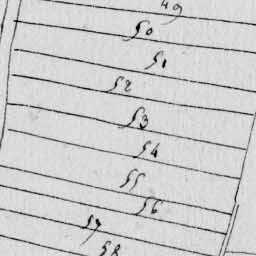 49
50
51
52
53
54
55
56
57
58